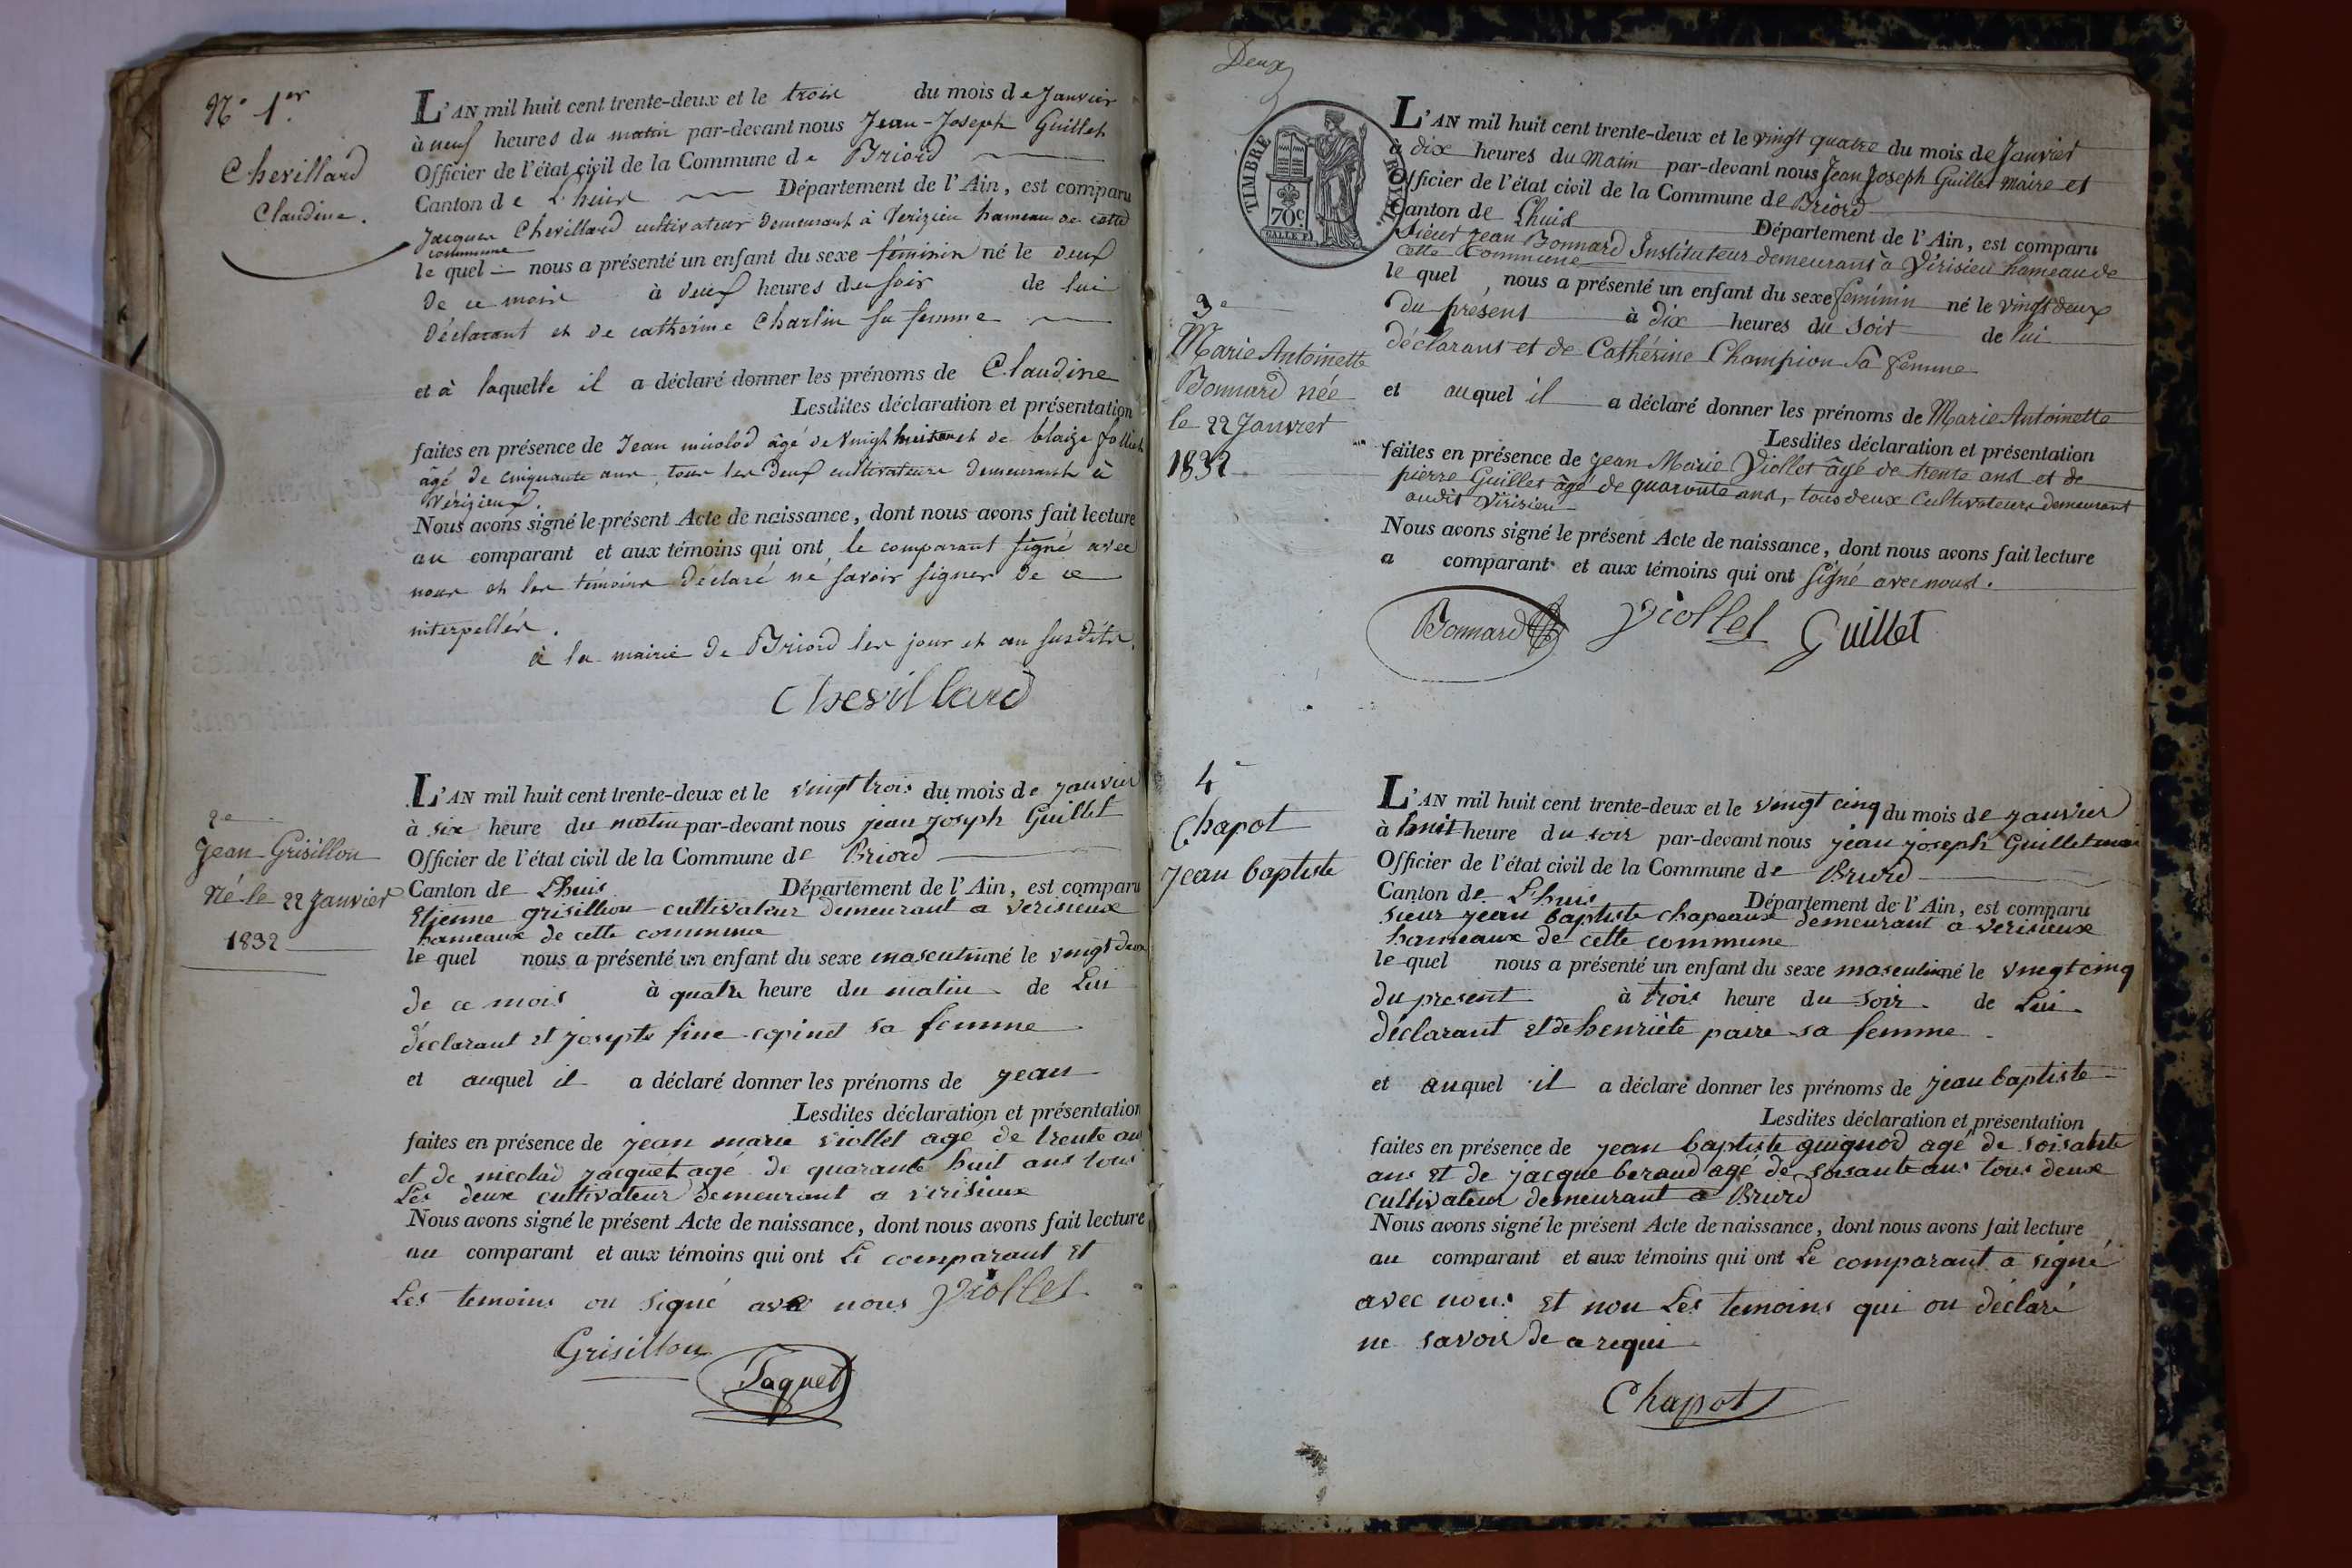 N° 1er
Chevillard
Claudine.
L'AN mil huit cent trente-deux et le trois du mois de Janvier
à neuf heures du matin par-devant nous Jean-Joseph Guillet
Officier de l'état civil de la Commune de Briord
Canton de Lhuis Département de l'Ain, est comparu
Jacques Chevillard cultivateur demeurant à Verizieu hameau de cette
commune
le quel nous a présenté un enfant du sexe féminin né le deux
de ce mois à deux heures du soir de lui
déclarant et de catherine Charlin sa femme
et à laquelle il a déclaré donner les prénoms de Claudine
Lesdites déclaration et présentation
faites en présence de Jean micolod âgé de vingt huit et de blaize
âgé de cinquante ans, tous les deux cultivateurs demeurants à
Vérizieux.
Nous avons signé le présent Acte de naissance, dont nous avons fait lecture
au comparant et aux témoins qui ont, le comparant signé avec
nous et les témoins déclaré ne savoir signer de ce
interpellés.
à la mairie de Briord les jour et an susdits.
Chevillard
2e
Jean Grisillon
Né le 22 Janvier
1832
L'AN mil huit cent trente-deux et le vingt trois du mois de janvier
à six heure du matin par-devant nous jean joseph Guillet
Officier de l'état civil de la Commune de Briord
Canton de Lhuis Département de l'Ain, est comparu
Etienne grisillion cultivateur demeurant a verisieux
hameaux de cette commune
le quel nous a présenté un enfant du sexe masculin né le vingt deux
de ce mois à quatre heure du matin de Lui
déclarant et josephe fine copinet sa femme
et auquel il a déclaré donner les prénoms de jean
Lesdites déclaration et présentation
faites en présence de jean marie viollet agé de trente ans
et de nicolas jacquet agé de quarante huit ans tous
Les deux cultivateur demeurant a verisieux
Nous avons signé le présent Acte de naissance, dont nous avons fait lecture
au comparant et aux témoins qui ont Le comparant et
Les temoins on signé avec nous Viollet
Grisillon
Jaquet
Deux
TIMBRE ROYAL
70c
3e
Marie Antoinette
Bonnard née
le 22 Janvier
1832
L'AN mil huit cent trente-deux et le vingt quatre du mois de Janvier
a dix heures du Matin par-devant nous Jean Joseph Guillet maire et
Officier de l'état civil de la Commune de Briord
Canton de Lhuis Département de l'Ain, est comparu
Sieur Jean Bonnard Instituteur demeurant à Virisieu hameau de
cette Commune
le quel, nous a présenté un enfant du sexe feminin né le vingt deux
du present à dix heures du soir de lui
déclarant et de Cathérine Champion Sa femme
et auquel il a déclaré donner les prénoms de Marie Antoinette
Lesdites déclaration et présentation
faites en présence de Jean Marie Viollet âgé de trente ans et de
pierre Guillet âgé de quarante ans, tous deux Cultivateurs demeurant
audit Virisieu
Nous avons signé le présent Acte de naissance, dont nous avons fait lecture
a comparant et aux témoins qui ont signé avec nous.
Bonnard Viollet Guillet
4e
Chapot
jean baptiste
L'AN mil huit cent trente-deux et le vingt cinq du mois de janvier
à huit heure du soir par-devant nous jean joseph Guillet
Officier de l'état civil de la Commune de Briord
Canton de Lhuis Département de l'Ain, est comparu
sieur jean baptiste chapeaux demeurant a verisieux
hameaux de cette commune
le quel nous a présenté un enfant du sexe masculin né le vingt cinq
du present à trois heure du soir de Lui
déclarant et de henriète paire sa femme
et auquel il a déclaré donner les prénoms de jean baptiste
Lesdites déclaration et présentation
faites en présence de jean baptiste guignod agé de soisante
ans et de jacque beraud agé de soisante ans tous deux
cultivateur demeurant a Briord
Nous avons signé le présent Acte de naissance, dont nous avons fait lecture
au comparant et aux témoins qui ont Le comparant a signé
avec nous et non Les temoins qui on déclaré
ne savoir de ce requi
Chapot